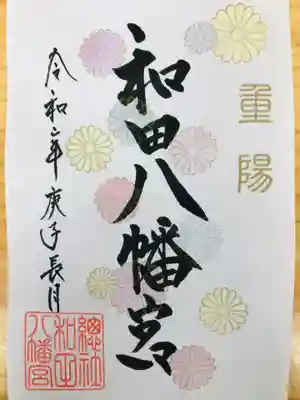 重陽
和田八幡宮
令和二年庚子長月
總社
和田
八幡宮